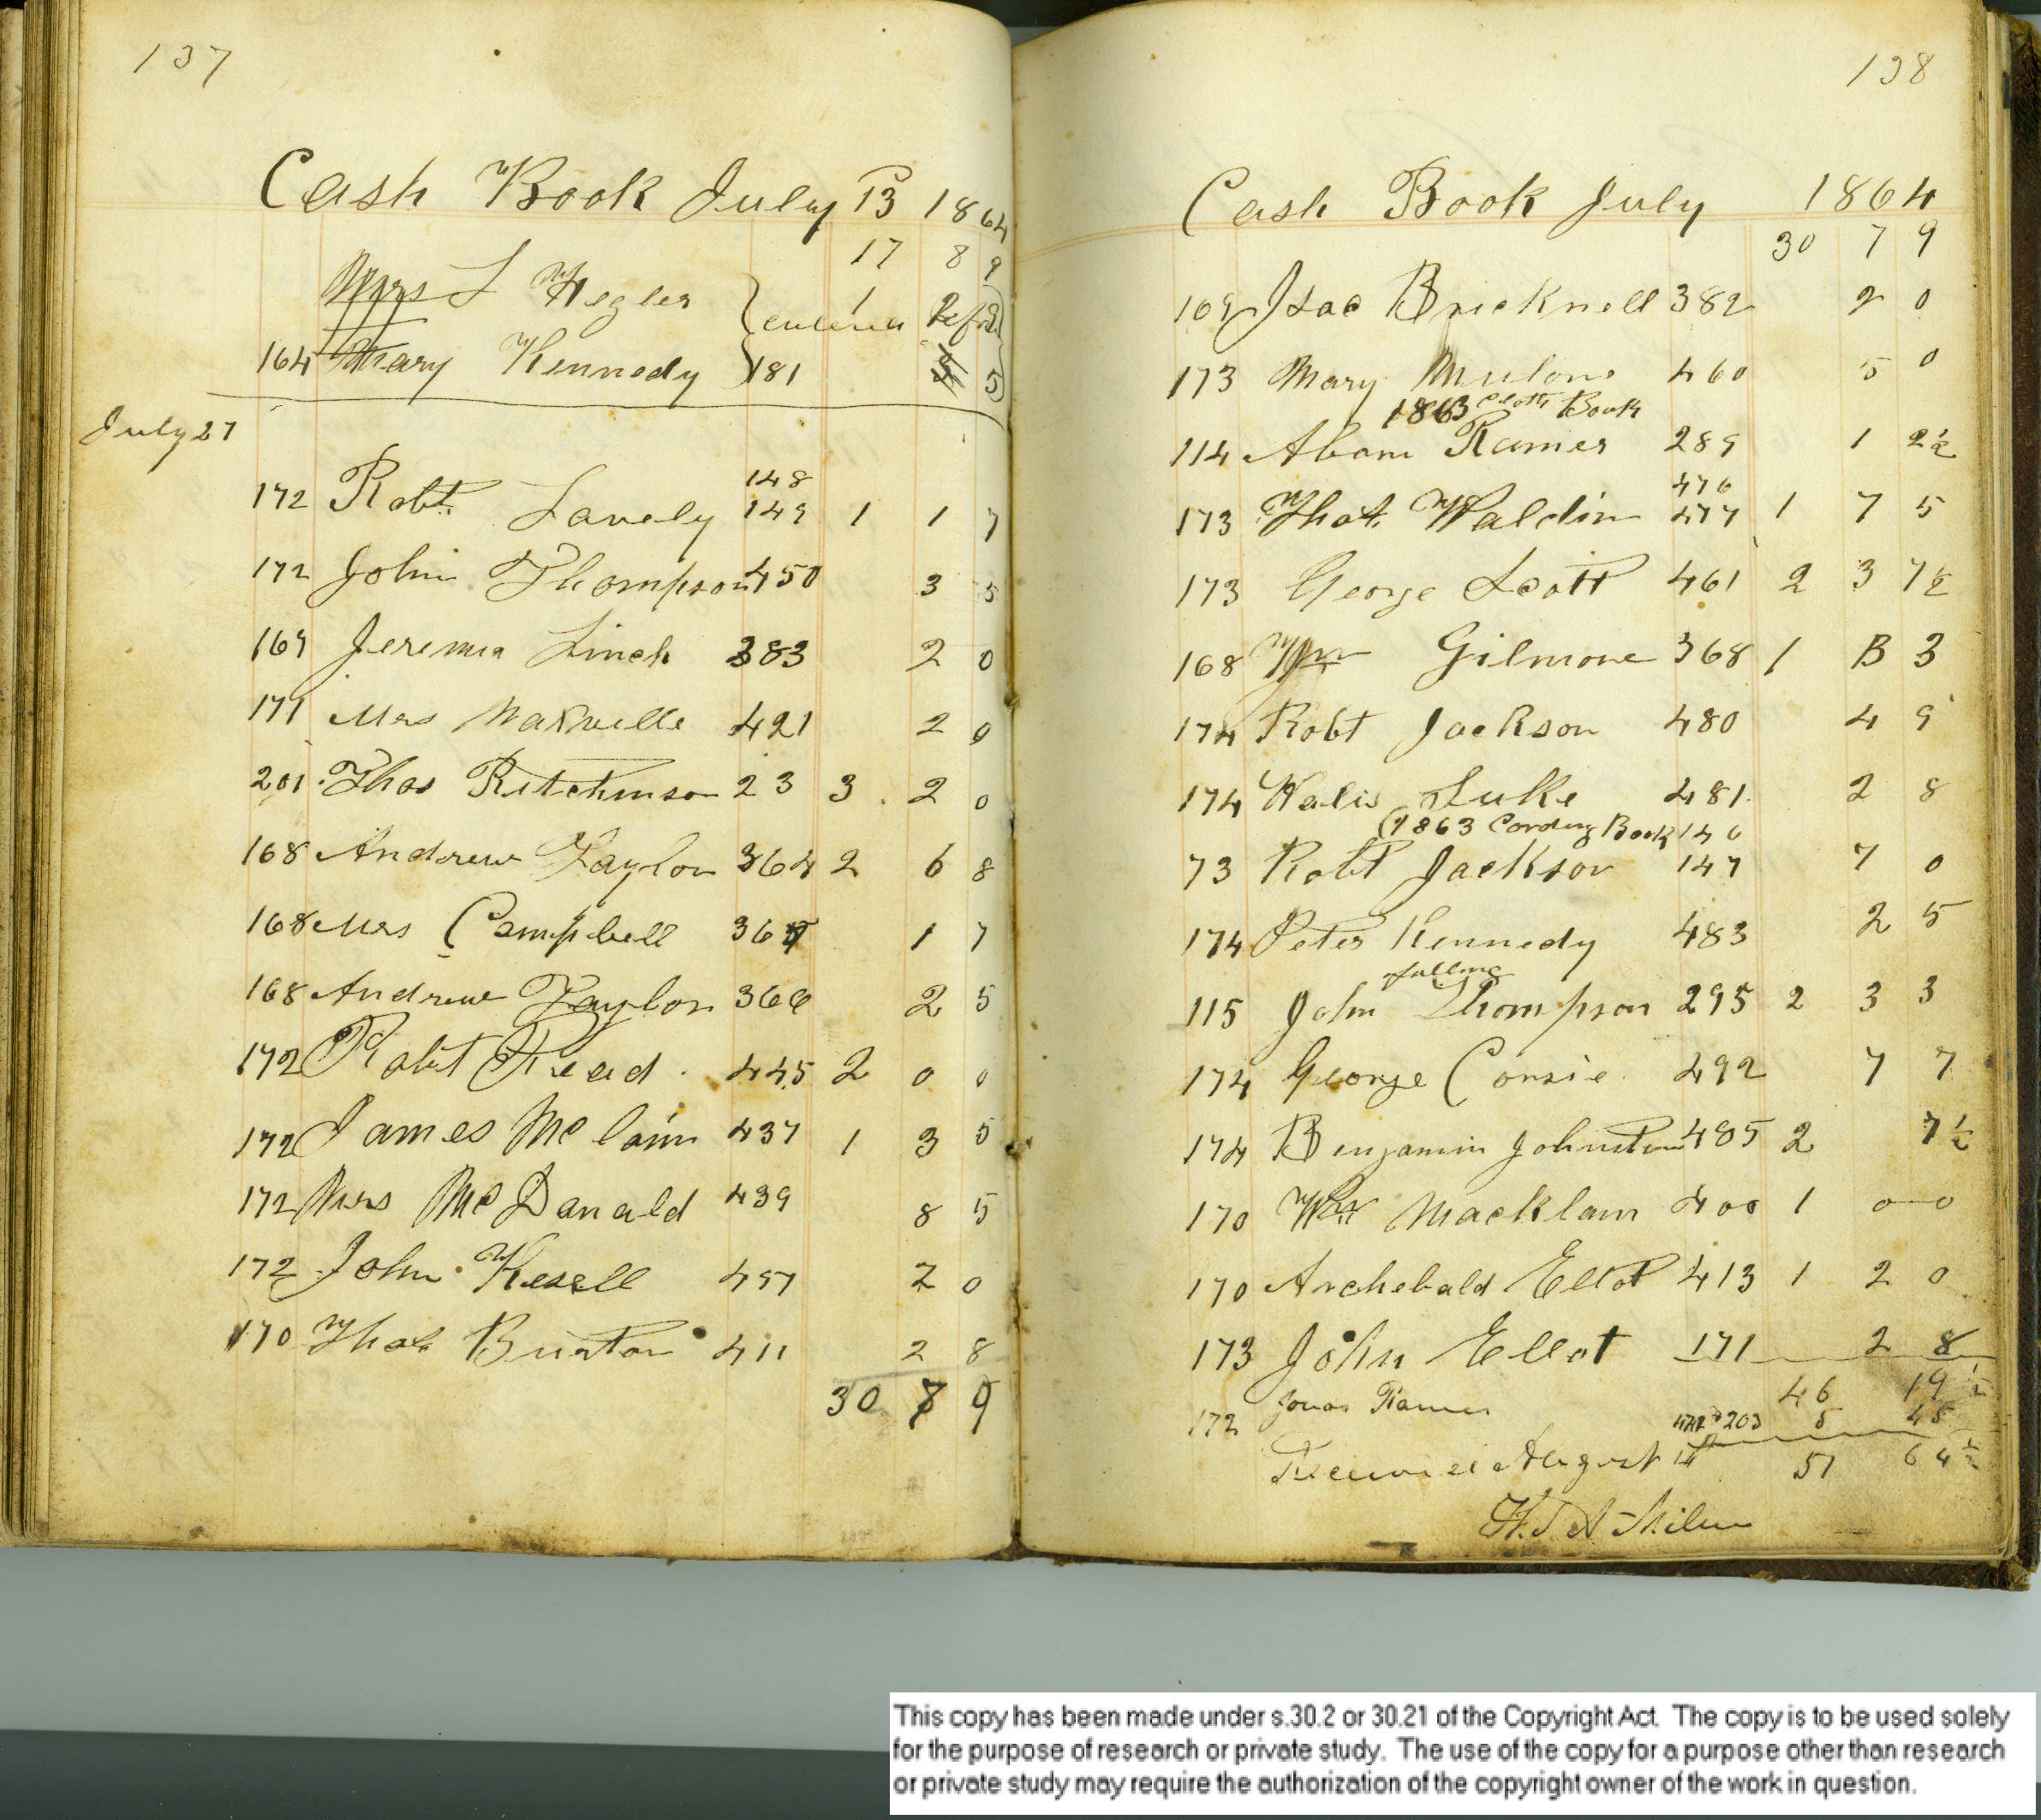 137
Cash Book July 13 1864
17 8 9
Mrs L Hegler 1
entered Before
164 Mary Kennedy 181 5
July 27
148
172 Robt Lavely 149 1 1 7
172 John Thompson 450 3 5
169 Jeremia Linch 383 2 0
171 Mrs Maxwelle 421 2 0
201 Thos Ritchinson 23 3 2 0
168 Andrew Taylor 364 2 6 8
168 Mrs Campbell 365 1 7
168 Andrew Taylor 366 2 5
172 Robt Read 445 2 0 0
172 James Mc lain 437 1 3 5
172 Mrs McDanald 439 8 5
172 John Kesell 457 2 0
170 Thos Burton 411 2 8
30 7 9
138
Cash Book July 1864
30 7 9
169 Isac Bricknell 382 2 0
173 Mary Mulone 460 5 0
1863 Cloth Book
114 Abam Ramer 289 1 2½
476
173 Thos Waldin 477 1 7 5
173 George Scott 461 2 3 7½
168 Wm Gilmore 368 1 3
174 Robt Jackson 480 4 9
174 Luke 481 2 8
(1863 Carding Book 146
73 Robt Jackson 147 7 0
174 Peter Kennedy 483 2 5
fulling
115 John Thompson 295 2 3 3
174 George Consie 492 7 7
174 Benjamin Johnston 485 2 7½
170 Wm Macklam 400 1 0 0
170 Archebald Ellot 413 1 2 0
173 John Ellot 171 2 8
46 19½
172 Jonas Ramer 203 5 45
Received August 1st 51 64½
This copy has been made under s.30.2 or 30.21 of the Copyright Act. The copy is to be used solely
for the purpose of research or private study. The use of the copy for a purpose other than research
or private study may require the authorization of the copyright owner of the work in question.